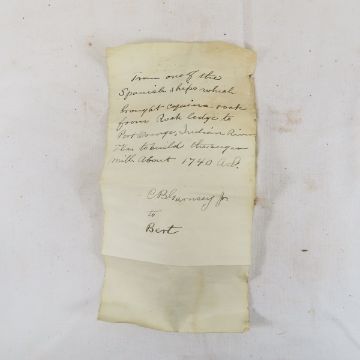 From one of the
Spanish ships which
brought coquina rock
from Rock ledge to
Port Orange, Indian River
Fla to build the sugar
mill. About 1740 A.D.
C B Guernsey Jr
to
Bert